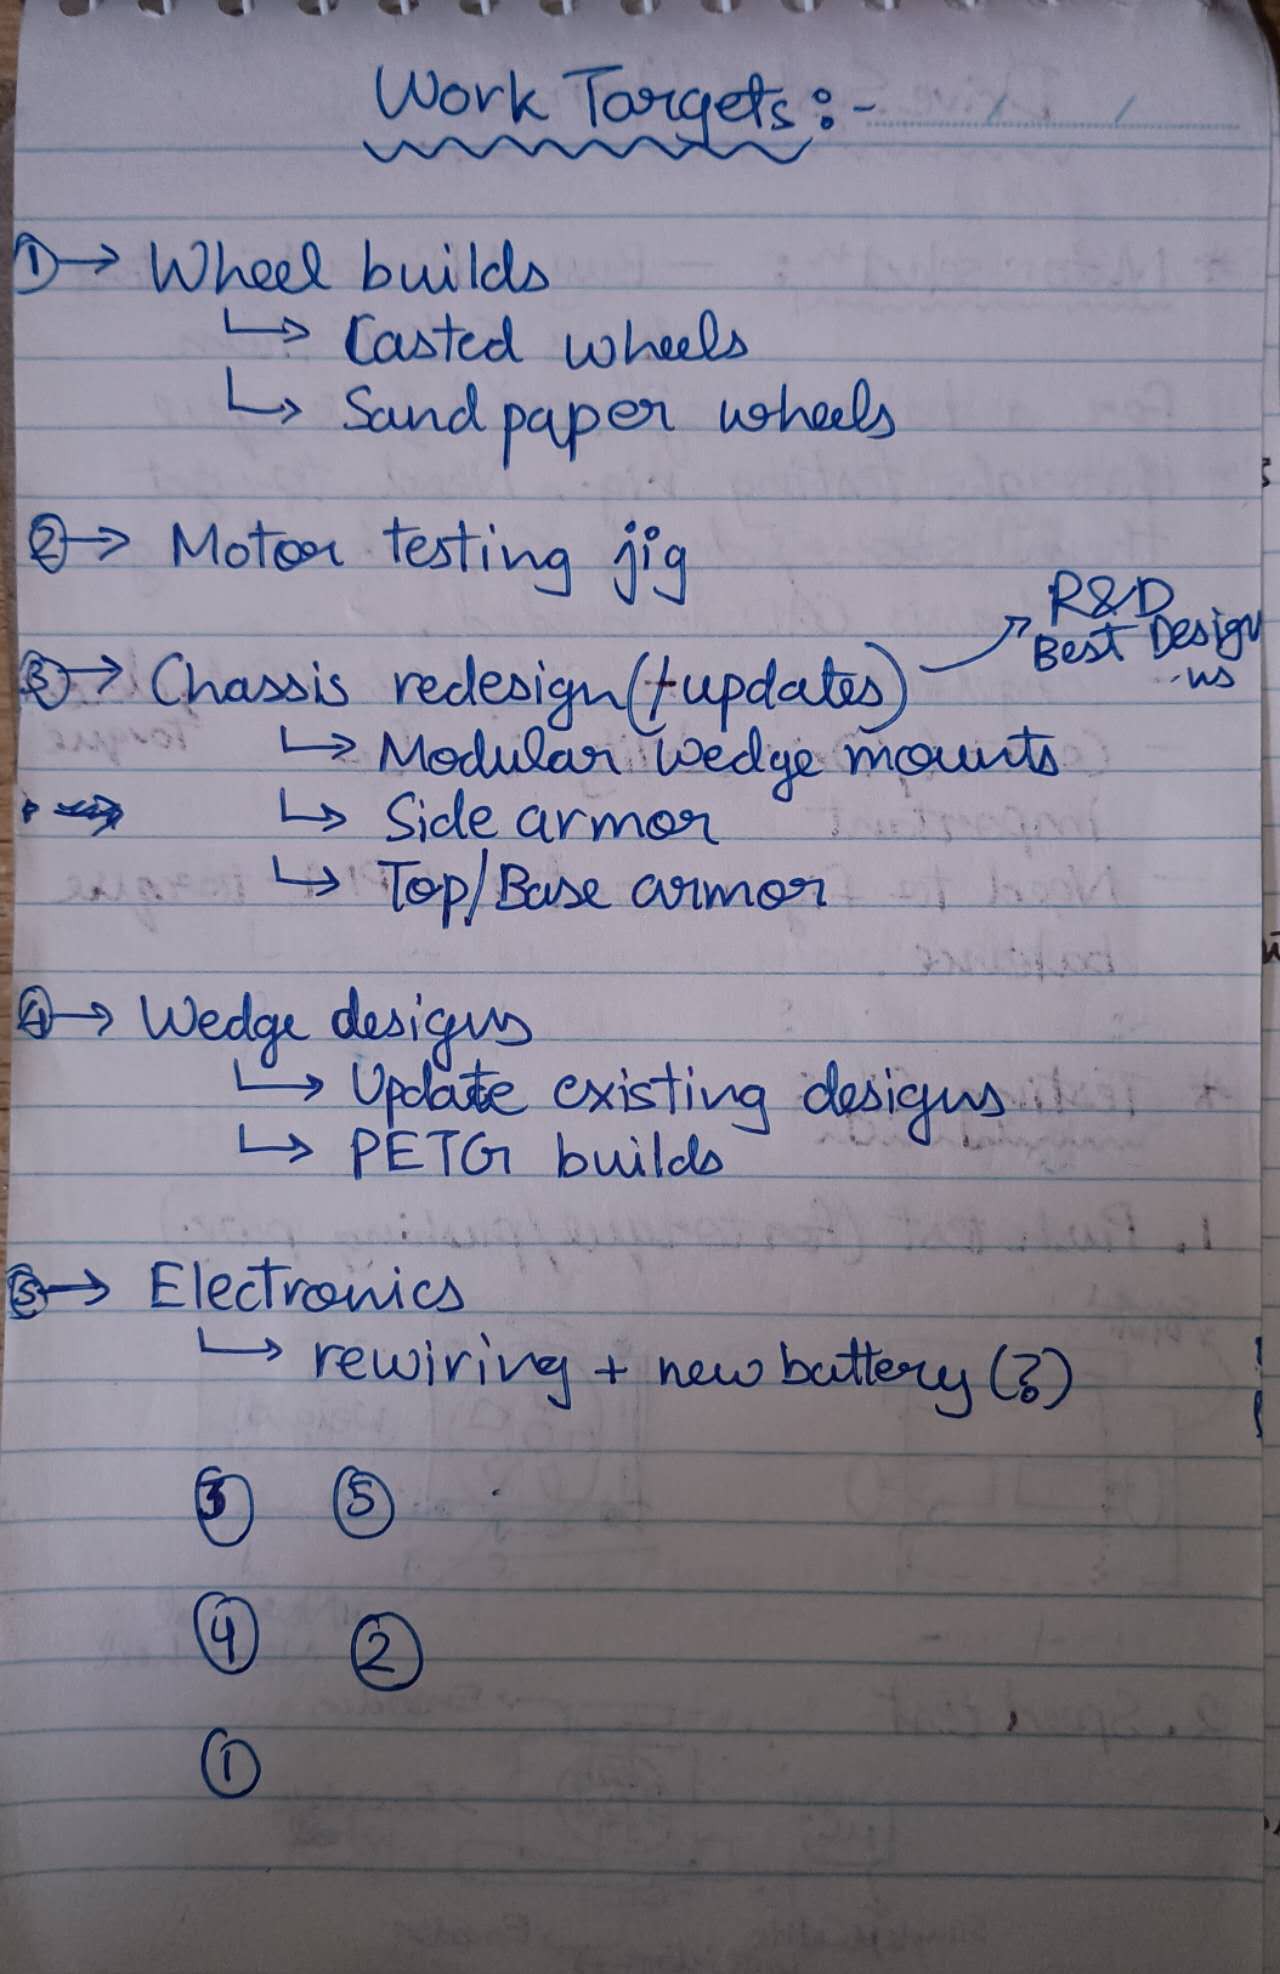 Work Targets:-
① → Wheel builds
↳ Casted wheels
↳ Sandpaper wheels
② → Motor testing jig
R&D
Best Design
③ → Chassis redesign (+updates)
↳ Modular wedge mounts
↳ Side armor
↳ Top/Base armor
④ → Wedge designs
↳ Update existing designs
↳ PETG builds
⑤ → Electronics
↳ rewiring + new battery (?)
③ ⑤
④ ②
①